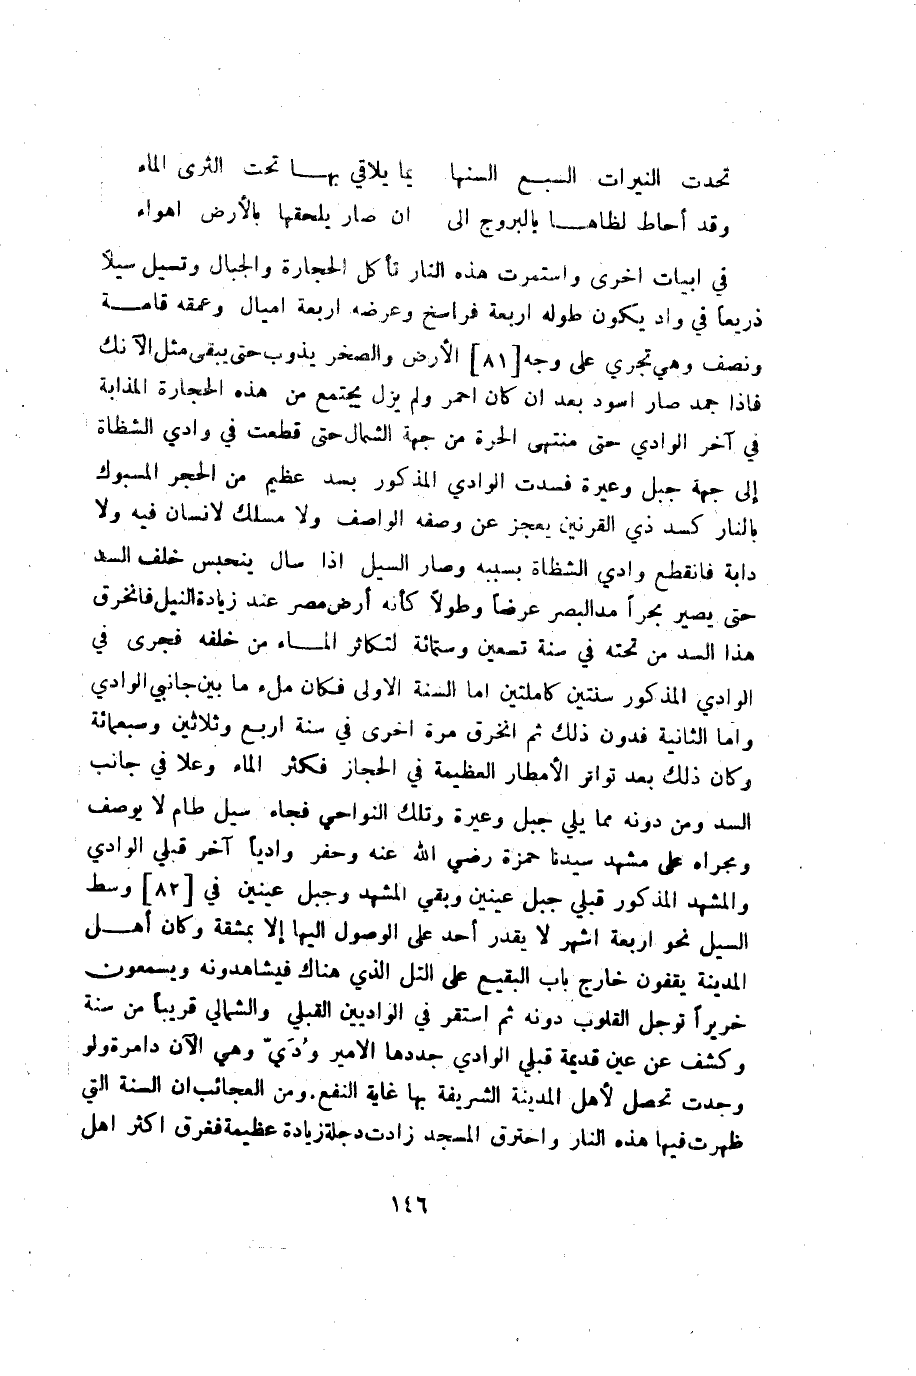 تحدت النيرات السبع السنها يما يلاقي بها تحت الثرى الماء
وقد أحاط لظاها بالبروج الى ان صار يلحقها بالأرض اهواء
في ابيات اخرى واستمرت هذه النار تأكل الحجارة والجبال وتسيل سيلاً
ذريعاً في واد يكون طوله اربعة فراسخ وعرضه اربعة اميال وعمقه قامة
ونصف وهي تجري على وجه [٨١] الأرض والصخر يذوب حتى يبقى مثل الآنك
فاذا جمد صار اسود بعد ان كان احمر ولم يزل يجتمع من هذه الحجارة المذابة
في آخر الوادي حتى منتهى الحرة من جهة الشمال حتى قطعت في وادي الشظاة
إلى جهة جبل وعيرة فسدت الوادي المذكور بسد عظيم من الحجر المسبوك
بالنار كسد ذي القرنين يعجز عن وصفه الواصف ولا مسلك لانسان فيه ولا
دابة فانقطع وادي الشظاة بسببه وصار السيل اذا سال ينحبس خلف السد
حتى يصير بحراً مد البصر عرضاً وطولاً كأنه أرض مصر عند زيادة النيل فانخرق
هذا السد من تحته في سنة تسعين وستمائة لتكاثر الماء من خلفه فجرى في
الوادي المذكور سنتين كاملتين اما السنة الاولى فكان ملء ما بين جانبي الوادي
واما الثانية فدون ذلك ثم انخرق مرة اخرى في سنة اربع وثلاثين وسبعمائة
وكان ذلك بعد تواتر الأمطار العظيمة في الحجاز فكثر الماء وعلا في جانب
السد ومن دونه مما يلي جبل وعيرة وتلك النواحي فجاء سيل طام لا يوصف
ومجراه على مشهد سيدنا حمزة رضي الله عنه وحفر وادياً آخر قبلي الوادي
والمشهد المذكور قبلي جبل عينين وبقي المشهد وجبل عينين في [٨٢] وسط
السيل نحو اربعة اشهر لا يقدر أحد على الوصول اليها إلا بمشقة وكان أهل
المدينة يقفون خارج باب البقيع على التل الذي هناك فيشاهدونه ويسمعون
خريراً توجل القلوب دونه ثم استقر في الواديين القبلي والشمالي قريباً من سنة
وكشف عن عين قديمة قبلي الوادي جددها الامير وُدَيّ وهي الآن دامرة ولو
وجدت تحصل لأهل المدينة الشريفة بها غاية النفع. ومن العجائب ان السنة التي
ظهرت فيها هذه النار واحترق المسجد زادت دجلة زيادة عظيمة ففرق اكثر اهل
١٤٦